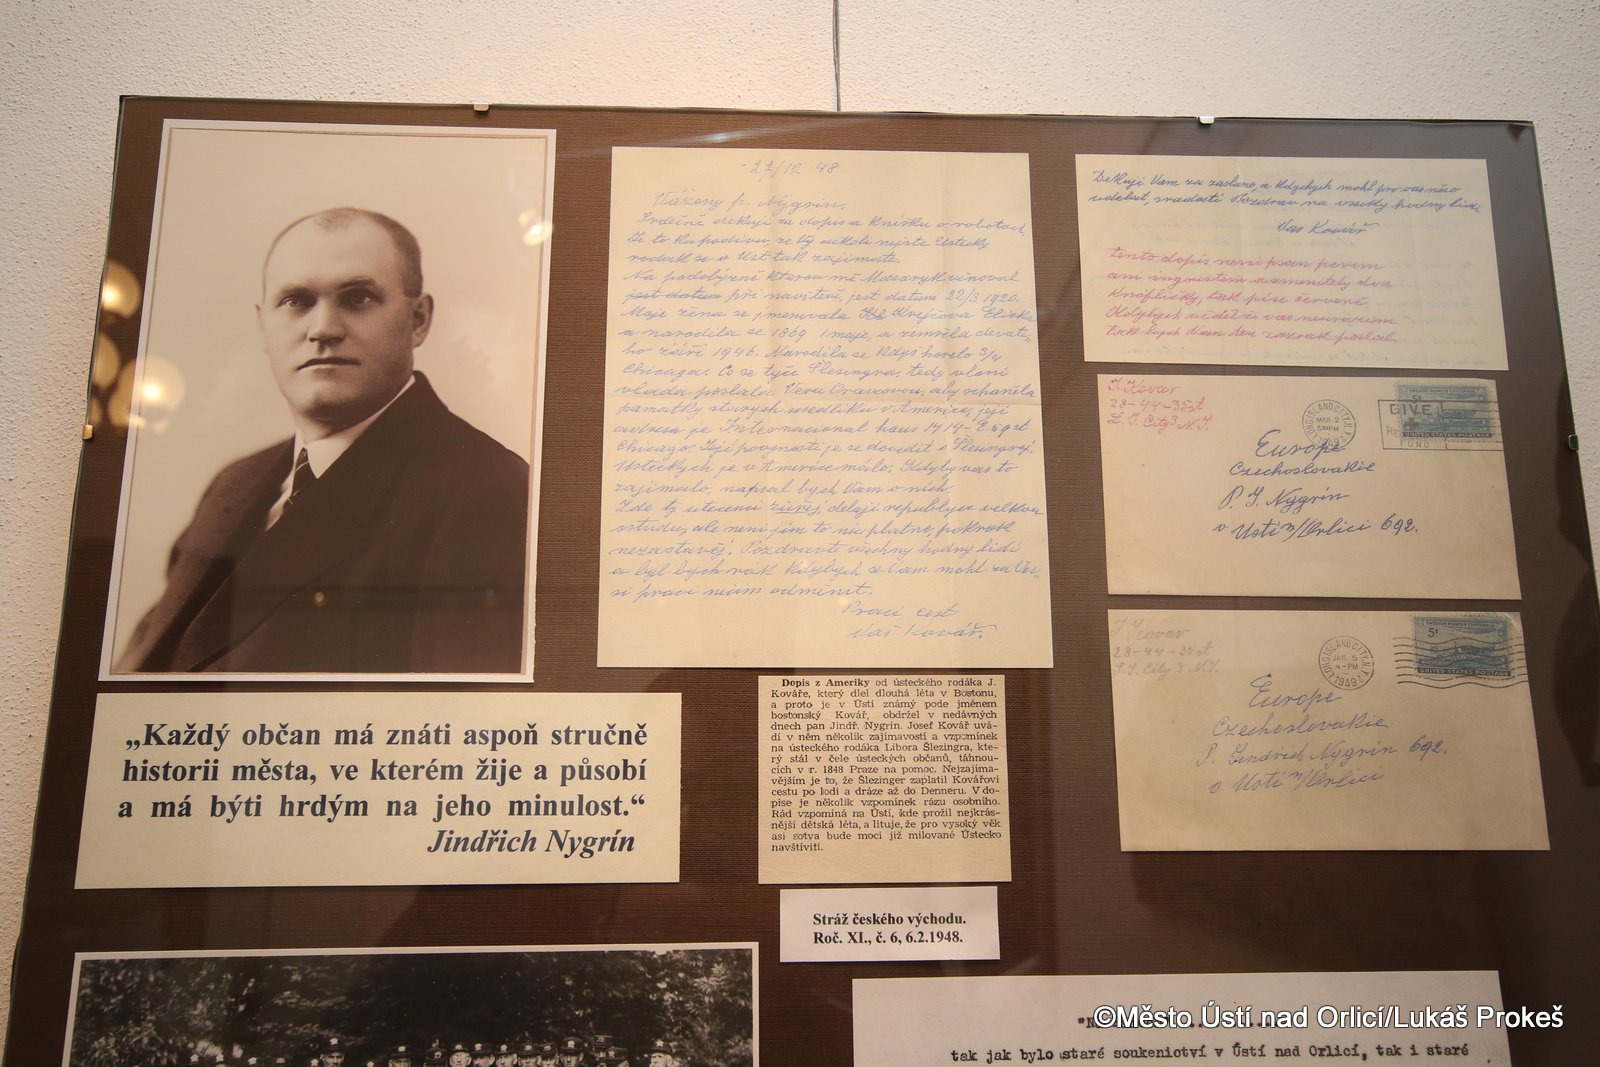 - 27/12 48
Vážený p. Nýgrin.
Srdečně dekuji za dopis a knišku o robotach
Je to ku podivu, ze Vy ackoli nejste Ustecky
rodak se o Ust tak zajimate.
Na podobizně kterou mě Masaryk věnoval
jest datum při navstevě, jest datum 22/3. 1920.
Moje žena se jmenovala Krejčova Eliska
a narodila se 1869 1 maje, a zemrela devate-
ho září 1946. Narodila se když horelo 3/4
Chicaga. Co se tyče Šlesingra, tedy vloni
vlada poslala Veru aby sehaněla
památky starych usedliku v Americe, její
adresa je Internacional haus 1414 - E 59 st
Chicago. Její povynosti je se dovedit o Slesingrovi
Usteckych je v Americe málo. Kdyby vas to
zajimalo, napsal bych Vam o nich.
Zde ty utecenci delaji republyce velkou
ostudu, ale neni jim to nic platno, pokrok
nezastavěj. Pozdravte všechny hodny lidi
a byl bych rád kdybych se Vam mohl za Va-
si praci necim odměnit.
Praci cest
Váš Kovář.
Dekuji Vam za zaslano, a kdybych mohl pro vas něco
udelat, sradosti Pozdrav na vsecky hodny lidi
Vas Kovář
tento dopis neni psan perem
ani ingoustem a zmenitely dva
knoflicky, tak píse červeně,
Kdybych věděl že vas neurazim
tak bych Vam ten zazrak poslal
J. Kovar
28-44-35 st
L. I. City 3 N.Y.
LONG ISLAND CITY N.Y.
MAR 2
5 PM
1949
GIVE
FUND
5¢
UNITED STATES POSTAGE
Europe
Czechoslovakie
P. J. Nygrin
v Usti n/Orlici 692.
J. Kovar
28-44-35 st
L. I. City 3 N.Y.
LONG ISLAND CITY N.Y.
JAN. 5
4-PM
1949
5¢
UNITED STATES POSTAGE
Europe
Czechoslovakie
P. Jindrich Nýgrin 692.
v Usti n/Orlici
„Každý občan má znáti aspoň stručně
historii města, ve kterém žije a působí
a má býti hrdým na jeho minulost.“
Jindřich Nygrín
Dopis z Ameriky od ústeckého rodáka J.
Kováře, který dlel dlouhá léta v Bostonu,
a proto je v Ústí známý pode jménem
bostonský Kovář, obdržel v nedávných
dnech pan Jindř. Nygrin. Josef Kovář uvá-
dí v něm několik zajímavostí a vzpomínek
na ústeckého rodáka Libora Šlezingra, kte-
rý stál v čele ústeckých občanů, táhnou-
cích v r. 1848 Praze na pomoc. Nejzajíma-
vějším je to, že Šlezinger zaplatil Kovářovi
cestu po lodi a dráze až do Denneru. V do-
pise je několik vzpomínek rázu osobního.
Rád vzpomíná na Ústí, kde prožil nejkrás-
nější dětská léta, a lituje, že pro vysoký věk
asi sotva bude moci již milované Ústecko
navštíviti.
Stráž českého východu.
Roč. XI., č. 6, 6.2.1948.
tak jak bylo staré soukenictví v Ústí nad Orlicí, tak i staré
©Město Ústí nad Orlicí/Lukáš Prokeš